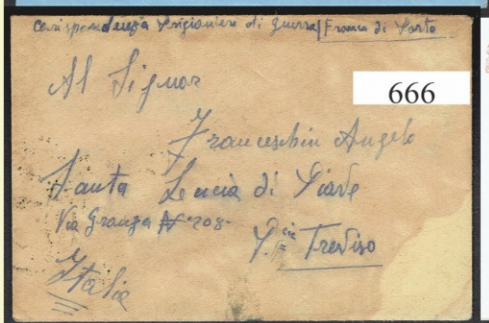 Corispondenza Prigioniere di guerra / Franco di Porto
666
Al Signor
Franceschin Angelo
Santa Lucia di Piave
Via Granza N° 208
P.cia Treviso
Italia